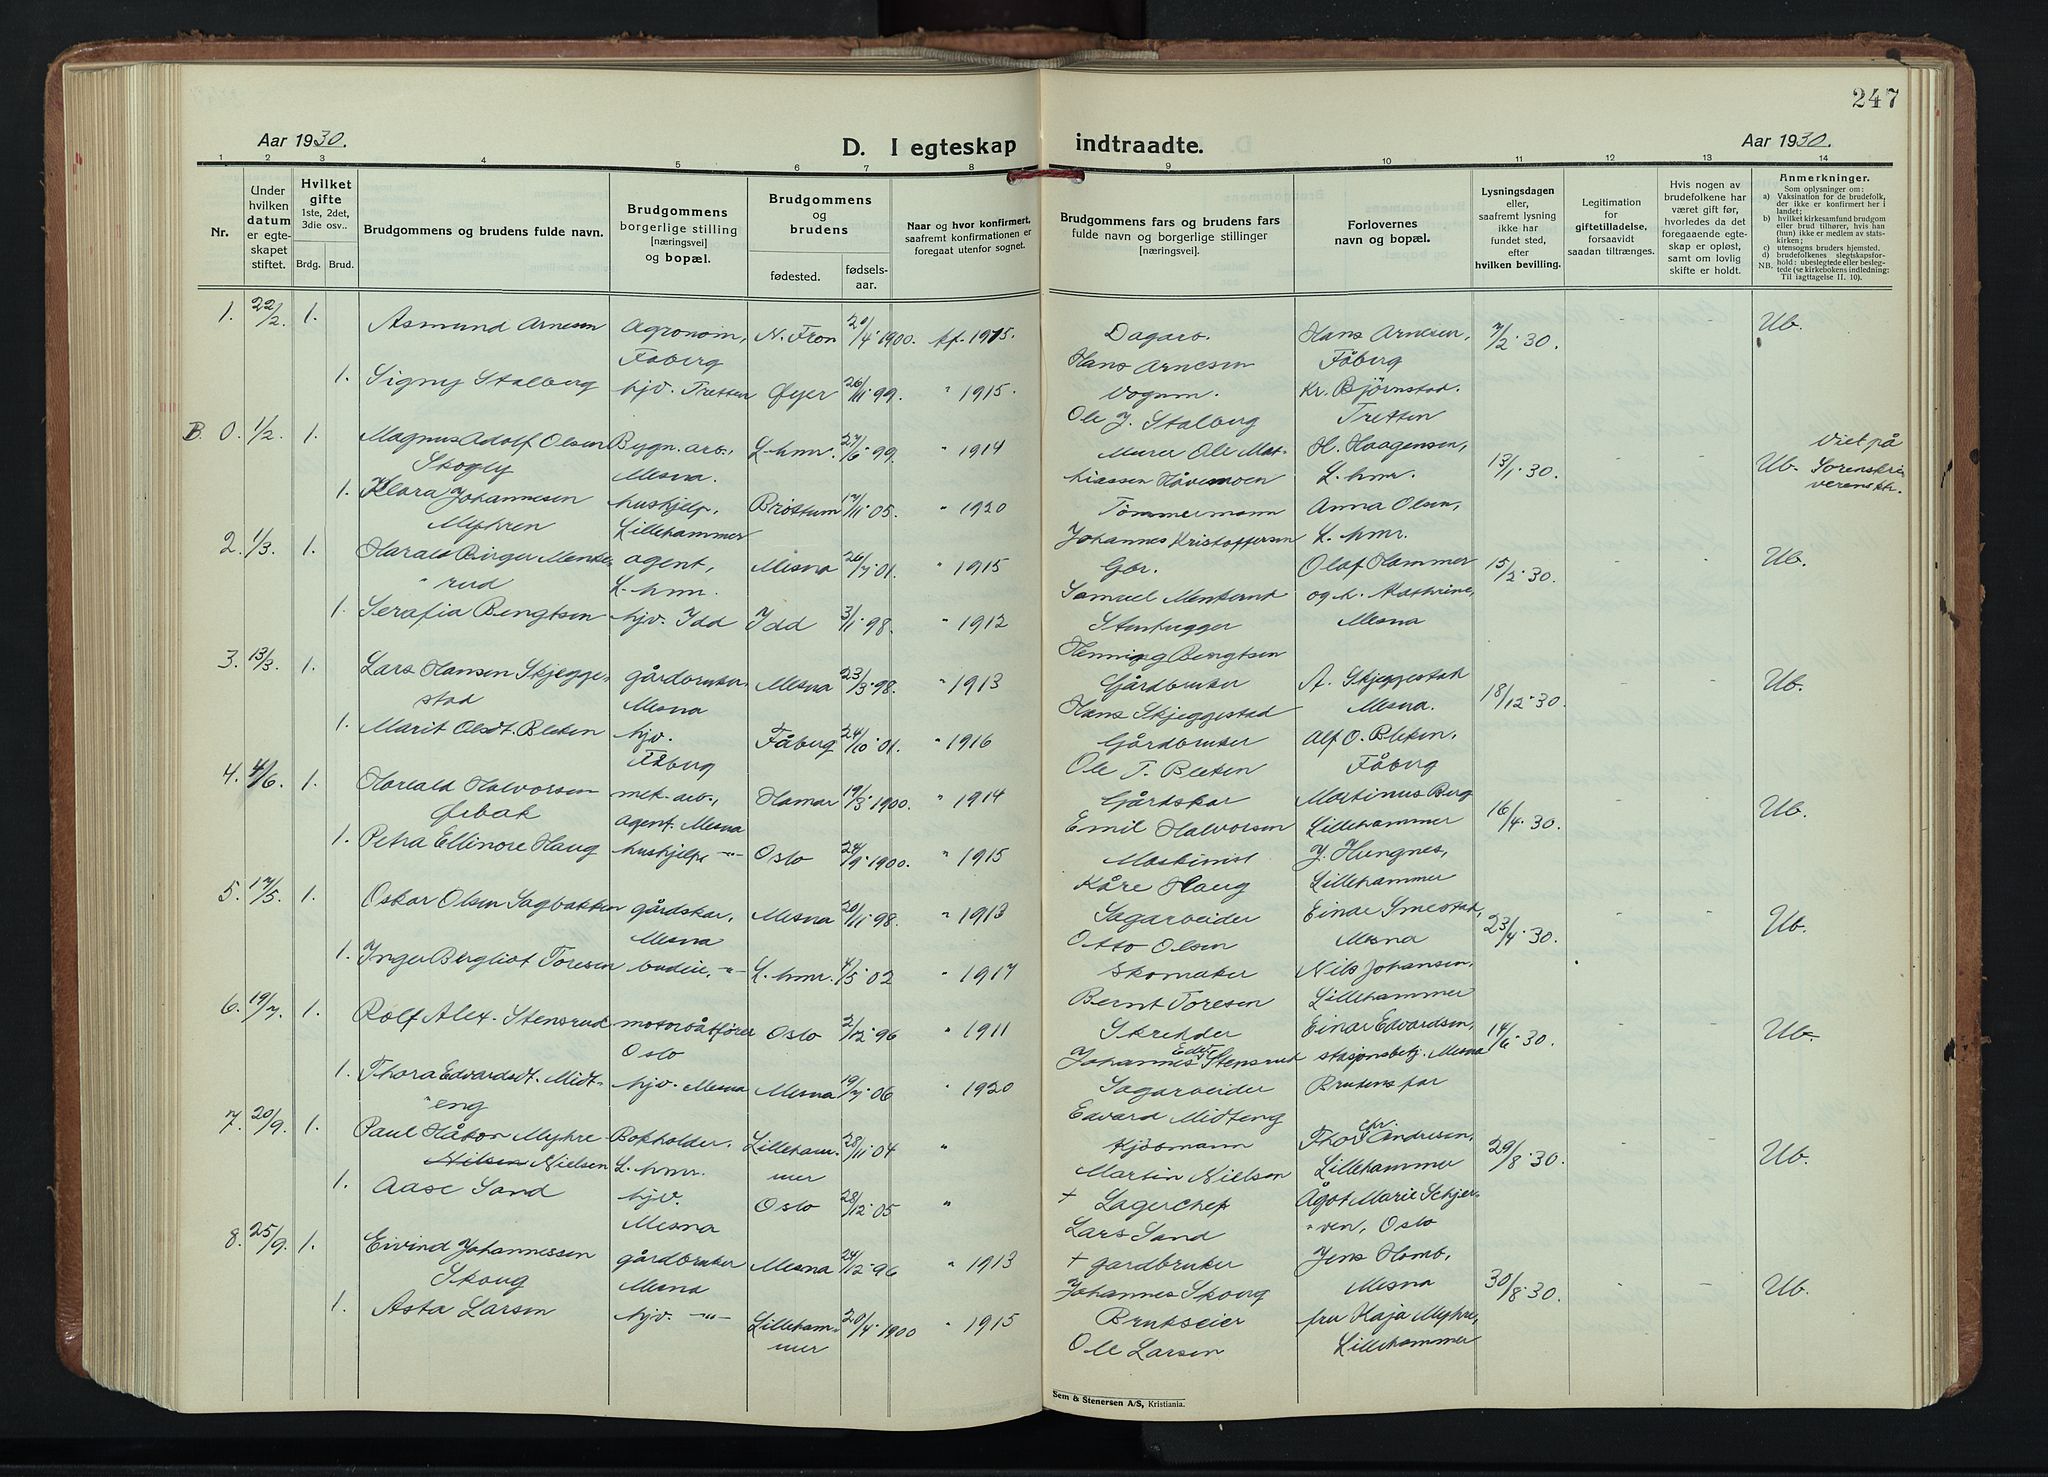 247
Aar 1930.
D. I egteskap indtraadte.
Aar 1930.
1 2 3 4 5 6 7 8 9 10 11 12 13 14
Nr.
Under hvilken datum er egteskapet stiftet.
Hvilket gifte 1ste, 2det, 3die osv.. Brdg. Brud.
Brudgommens og brudens fulde navn.
Brudgommens borgerlige stilling [næringsvei] og bopæl.
Brudgommens og brudens fødested. fødselsaar.
Naar og hvor konfirmert, saafremt konfirmationen er foregaat utenfor sognet.
Brudgommens fars og brudens fars fulde navn og borgerlige stillinger [næringsvei].
Forlovernes navn og bopæl.
Lysningsdagen eller, saafremt lysning ikke har fundet sted, efter hvilken bevilling.
Legitimation for giftetilladelse, forsaavidt saadan tiltrænges.
Hvis nogen av brudefolkene har været gift før, hvorledes da det foregaaende egteskap er opløst, samt om lovlig skifte er holdt.
Anmerkninger.
Som oplysninger om:
a) Vaksination for de brudefolk, der ikke er konfirmert her i landet;
b) hvilket kirkesamfund brudgom eller brud tilhører, hvis han (hun) ikke er medlem av statskirken;
c) utensogns bruders hjemsted.
d) brudefolkenes slegtskapsforhold: ubeslegtede eller beslegtede (se kirkebokens indledning: Til iagttagelse II. 10).
NB.
1. 22/2. 1. Asmund Arnesen agronom, N. Fron 20/4 1900. kf. 1915. Dagarb. Hans Arnesen, 7/2 30. Ub.
Fåberg Hans Arnesen Fåberg
1. Signy Stalberg hjv. Tretten Øyer 26/11 99. " 1915. Vognm. Kr. Bjørnstad.
Ole J. Stalberg Tretten
B. 0. 1/2. 1. Magnus Adolf Olsen Bygn. arb., L.hmr. 27/6 99. " 1914 Murer Ole Mat- H. Haagensen, 13/1 30. Ub. Viet på
Skogly Mesna. hiassen Hövemoen L.hmr. Sorenskri
1. Klara Johannesen hushjelp, Brøttum 17/11 05. " 1920 Tömmermann Anna Olsen, verenskr.
Myhren Lillehammer Johannes Kristoffersen L.hmr.
2. 1/3. 1. Harald Birger Mente agent, Mesna 26/7 01. " 1915 Gbr. Olaf Hammer 15/2 30. Ub.
" rud L.hmr. Samuel Menterud og h. Kathrine,
1. Serafia Bengtsen hjv. Idd Idd 3/1 98. " 1912 Stenhugger Mesna
Henning Bengtsen
3. 13/3. 1. Lars Hansen Skjegge- gårdbruker, Mesna 23/3 98. " 1913 Gårdbruker A. Skjeggestad 18/12 30. Ub.
stad Mesna Hans Skjeggestad Mesna.
1. Marit Olsdt. Bleken hjv. Fåberg 24/10 01. " 1916 Gårdbruker Alf O. Bleken,
Fåberg Ole T. Bleken Fåberg
4. 4/6. 1. Harald Halvorsen mek. arb., Hamar 19/3 1900. " 1914 Gårdskar Martinus Berg 16/4 30. Ub.
Örbak agent. Mesna Emil Halvorsen Lillehammer
1. Petra Ellinore Haug hushjelp -"- Oslo 24/9 1900. " 1915 Maskinist J. Hungnes,
Kåre Haug Lillehammer
5. 17/5. 1. Oskar Olsen Sagbakken gårdskar, Mesna 20/11 98. " 1913 Sagarbeider Einar Smestad, 23/4 30. Ub.
Mesna Otto Olsen Mesna
1. Inger Bergliot Toresen budeie, -"- L.hmr. 4/5 02 " 1917 Skomaker Nils Johansen,
Bernt Toresen Lillehammer
6. 19/7. 1. Rolf Alex. Stensrud motorbåtfører Oslo 2/12 96 " 1911 Skredder Einar Edvardsen, 14/6 30. Ub.
Oslo Johannes Edv. Stensrud stasjonsbetj. Mesna
1. Thora Edvardsdt. Midt- hjv. Mesna Mesna 19/7 06 " 1920 Sagarbeider Brudens far
"eng Edvard Midteng
7. 20/9. 1. Paul Håkon Myhre Bokholder, Lilleham- 28/11 04 " Kjöbmann Thor Chr. Andresen, 29/8 30. Ub.
Nilsen Nielsen L.hmr. mer Martin Nielsen Lillehammer
1. Aase Sand hjv. Oslo 28/12 05 " + Lagerchef Ågot Marie Schjer-
Mesna Lars Sand "ven, Oslo
8. 25/9. 1. Eivind Johannessen gårdbruker Mesna 24/12 96 " 1913 + gardbruker Jens Homb, 30/8 30. Ub.
Skoug Mesna Johannes Skoug Mesna
1. Asta Larsen hjv. -"- Lilleham- 20/4 1900 " 1915 Brukseier fru Kaja Myhre,
mer Ole Larsen Lillehammer
Sem & Stenersen A/S, Kristiania.